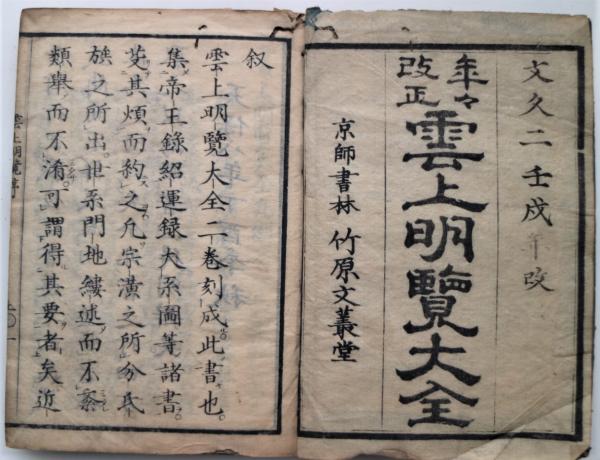 文久二壬戌年改
年々改正
雲上明覽大全
京師書林 竹原文叢堂
叙
雲上明覽大全二卷刻成。此書也。
集帝王錄紹運錄大系圖等諸書。
芟其煩而約之凡宗潢之所分氏
族之所出世系門地縷述而不紊
類舉而不淆。可謂得其要者矣近